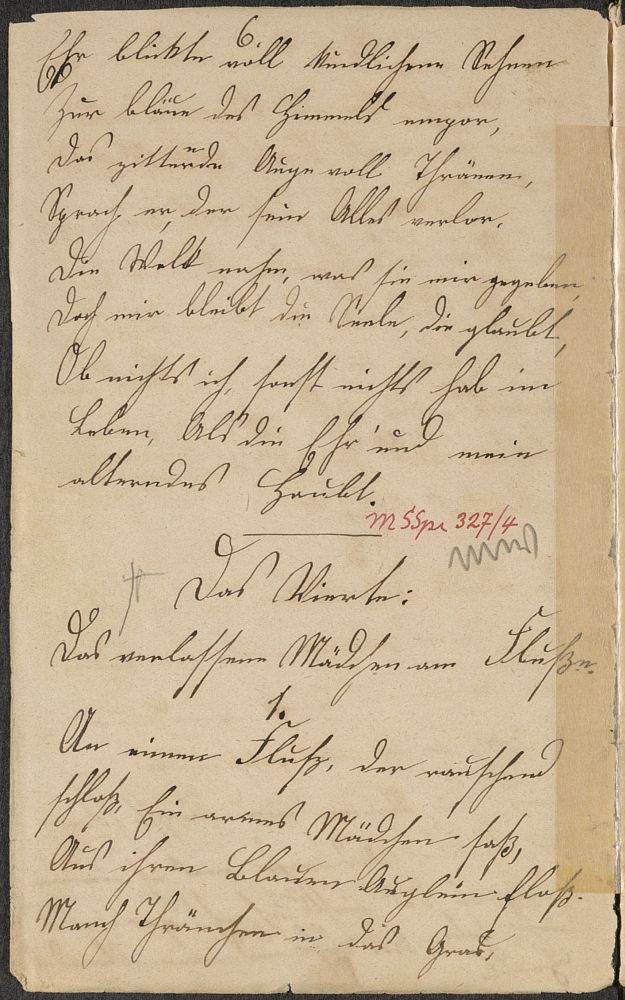 6
Ehr blickte voll kindlichem Sehnen
Zur bläue des Himmels empor,
Das zitternde Auge voll Thränen,
Sprach er, der sein Alles verlor.
Die Welt nahm, was sie mir gegeben,
Doch mir bleibt die Seele, die glaubt,
Ob nichts ich, sonst nichts hab im
Leben, Als die Ehr und mein
alterndes Haubt.
M 327/4
Das Vierte:
Das verlassene Mädchen am Fluße.
1.
An einem Fluß, der rauschend
schoß, Ein armes Mädchen saß,
Aus ihren Blauen Äuglein floß.
Manch Thränchen in das Gras,